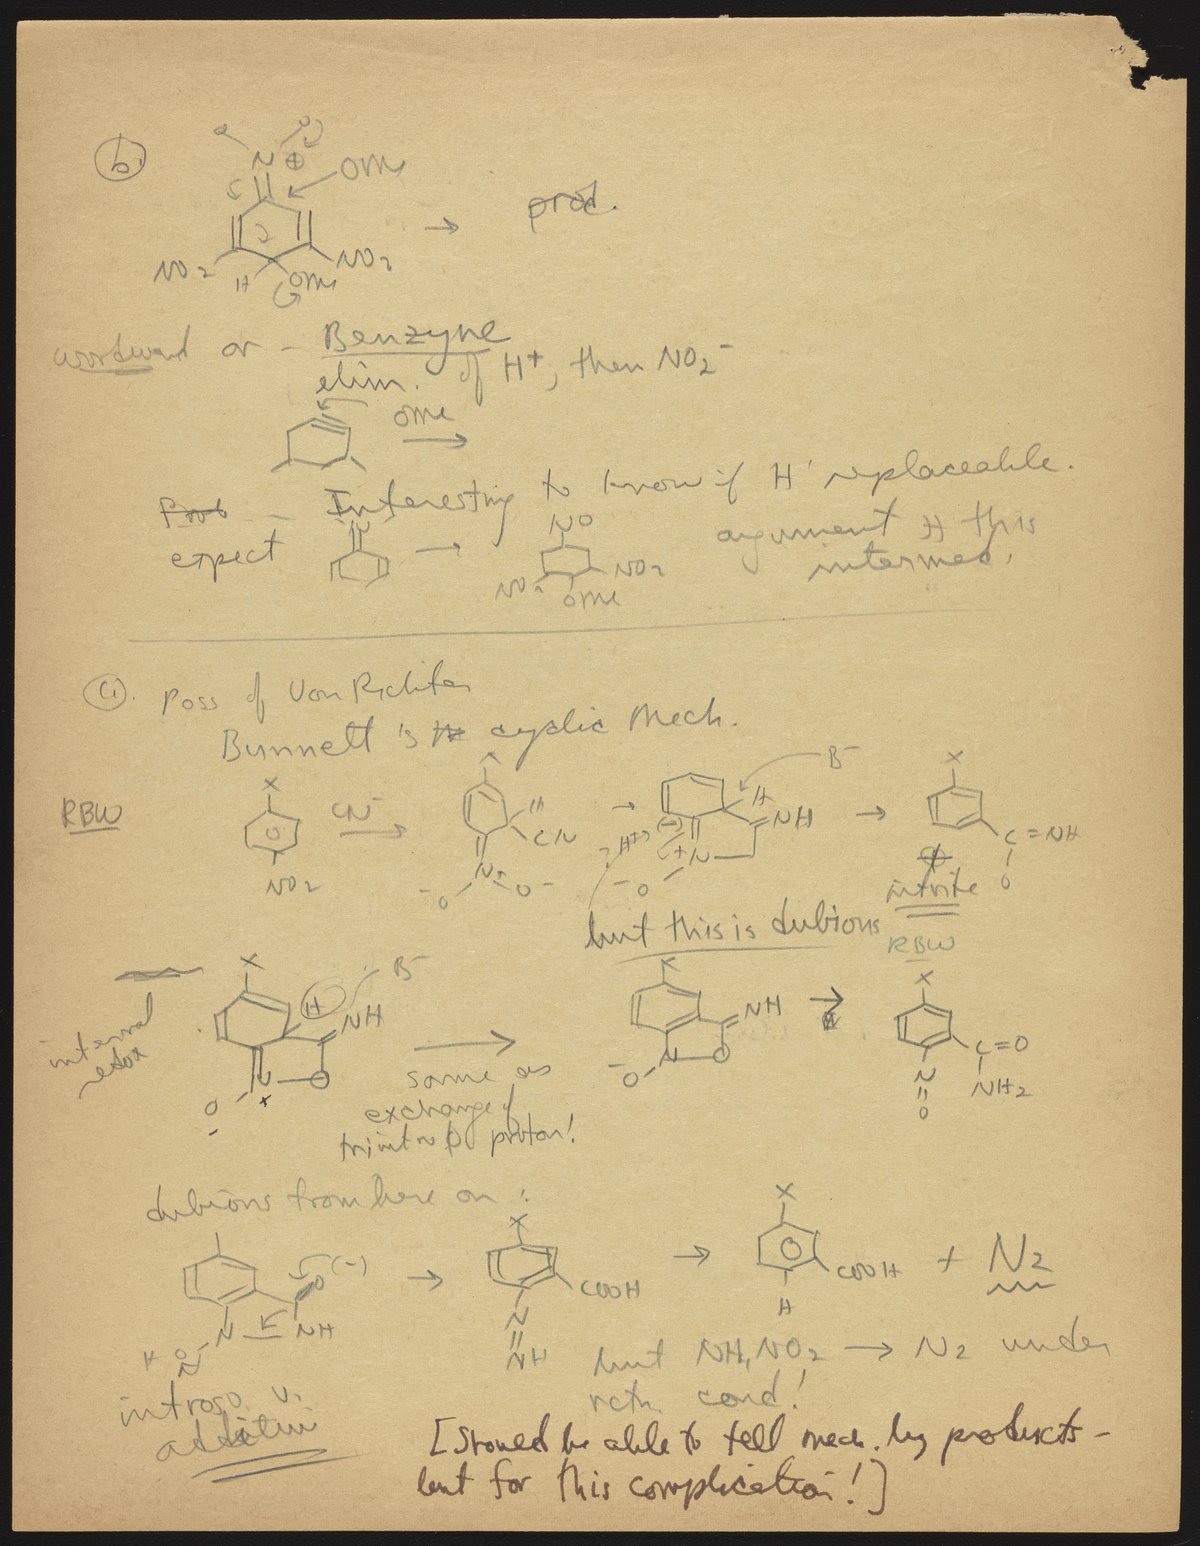 b'
N ⊕ OMe
→ prod.
NO2 H OMe NO2
Woodward or – Benzyne
elim. of H+, then NO2-
OMe
→
Prob – Interesting to know if H replaceable.
expect → NO argument
this
NO2 OMe NO2 intermed.
a. Poss of Von Richter
Bunnett's cyclic Mech.
RBW
X X B- X
CN- → H CN → H NH → C=NH
NO2 N+ -O O- H+ (-) + N -O O
nitrite
but this is dubious RBW
X H B- X X
internal redox NH NH → C=O
N O N O N NH2
O + - → -O O
same as
exchange of
trinitro φ proton!
dubious from here on:
X X
O (-) → COOH → COOH + N2
N NH N H
H O N NH but NH, NO2 → N2 under
nitroso v. rctn. cond!
addition
[Should be able to tell mech. by products –
but for this complication!]